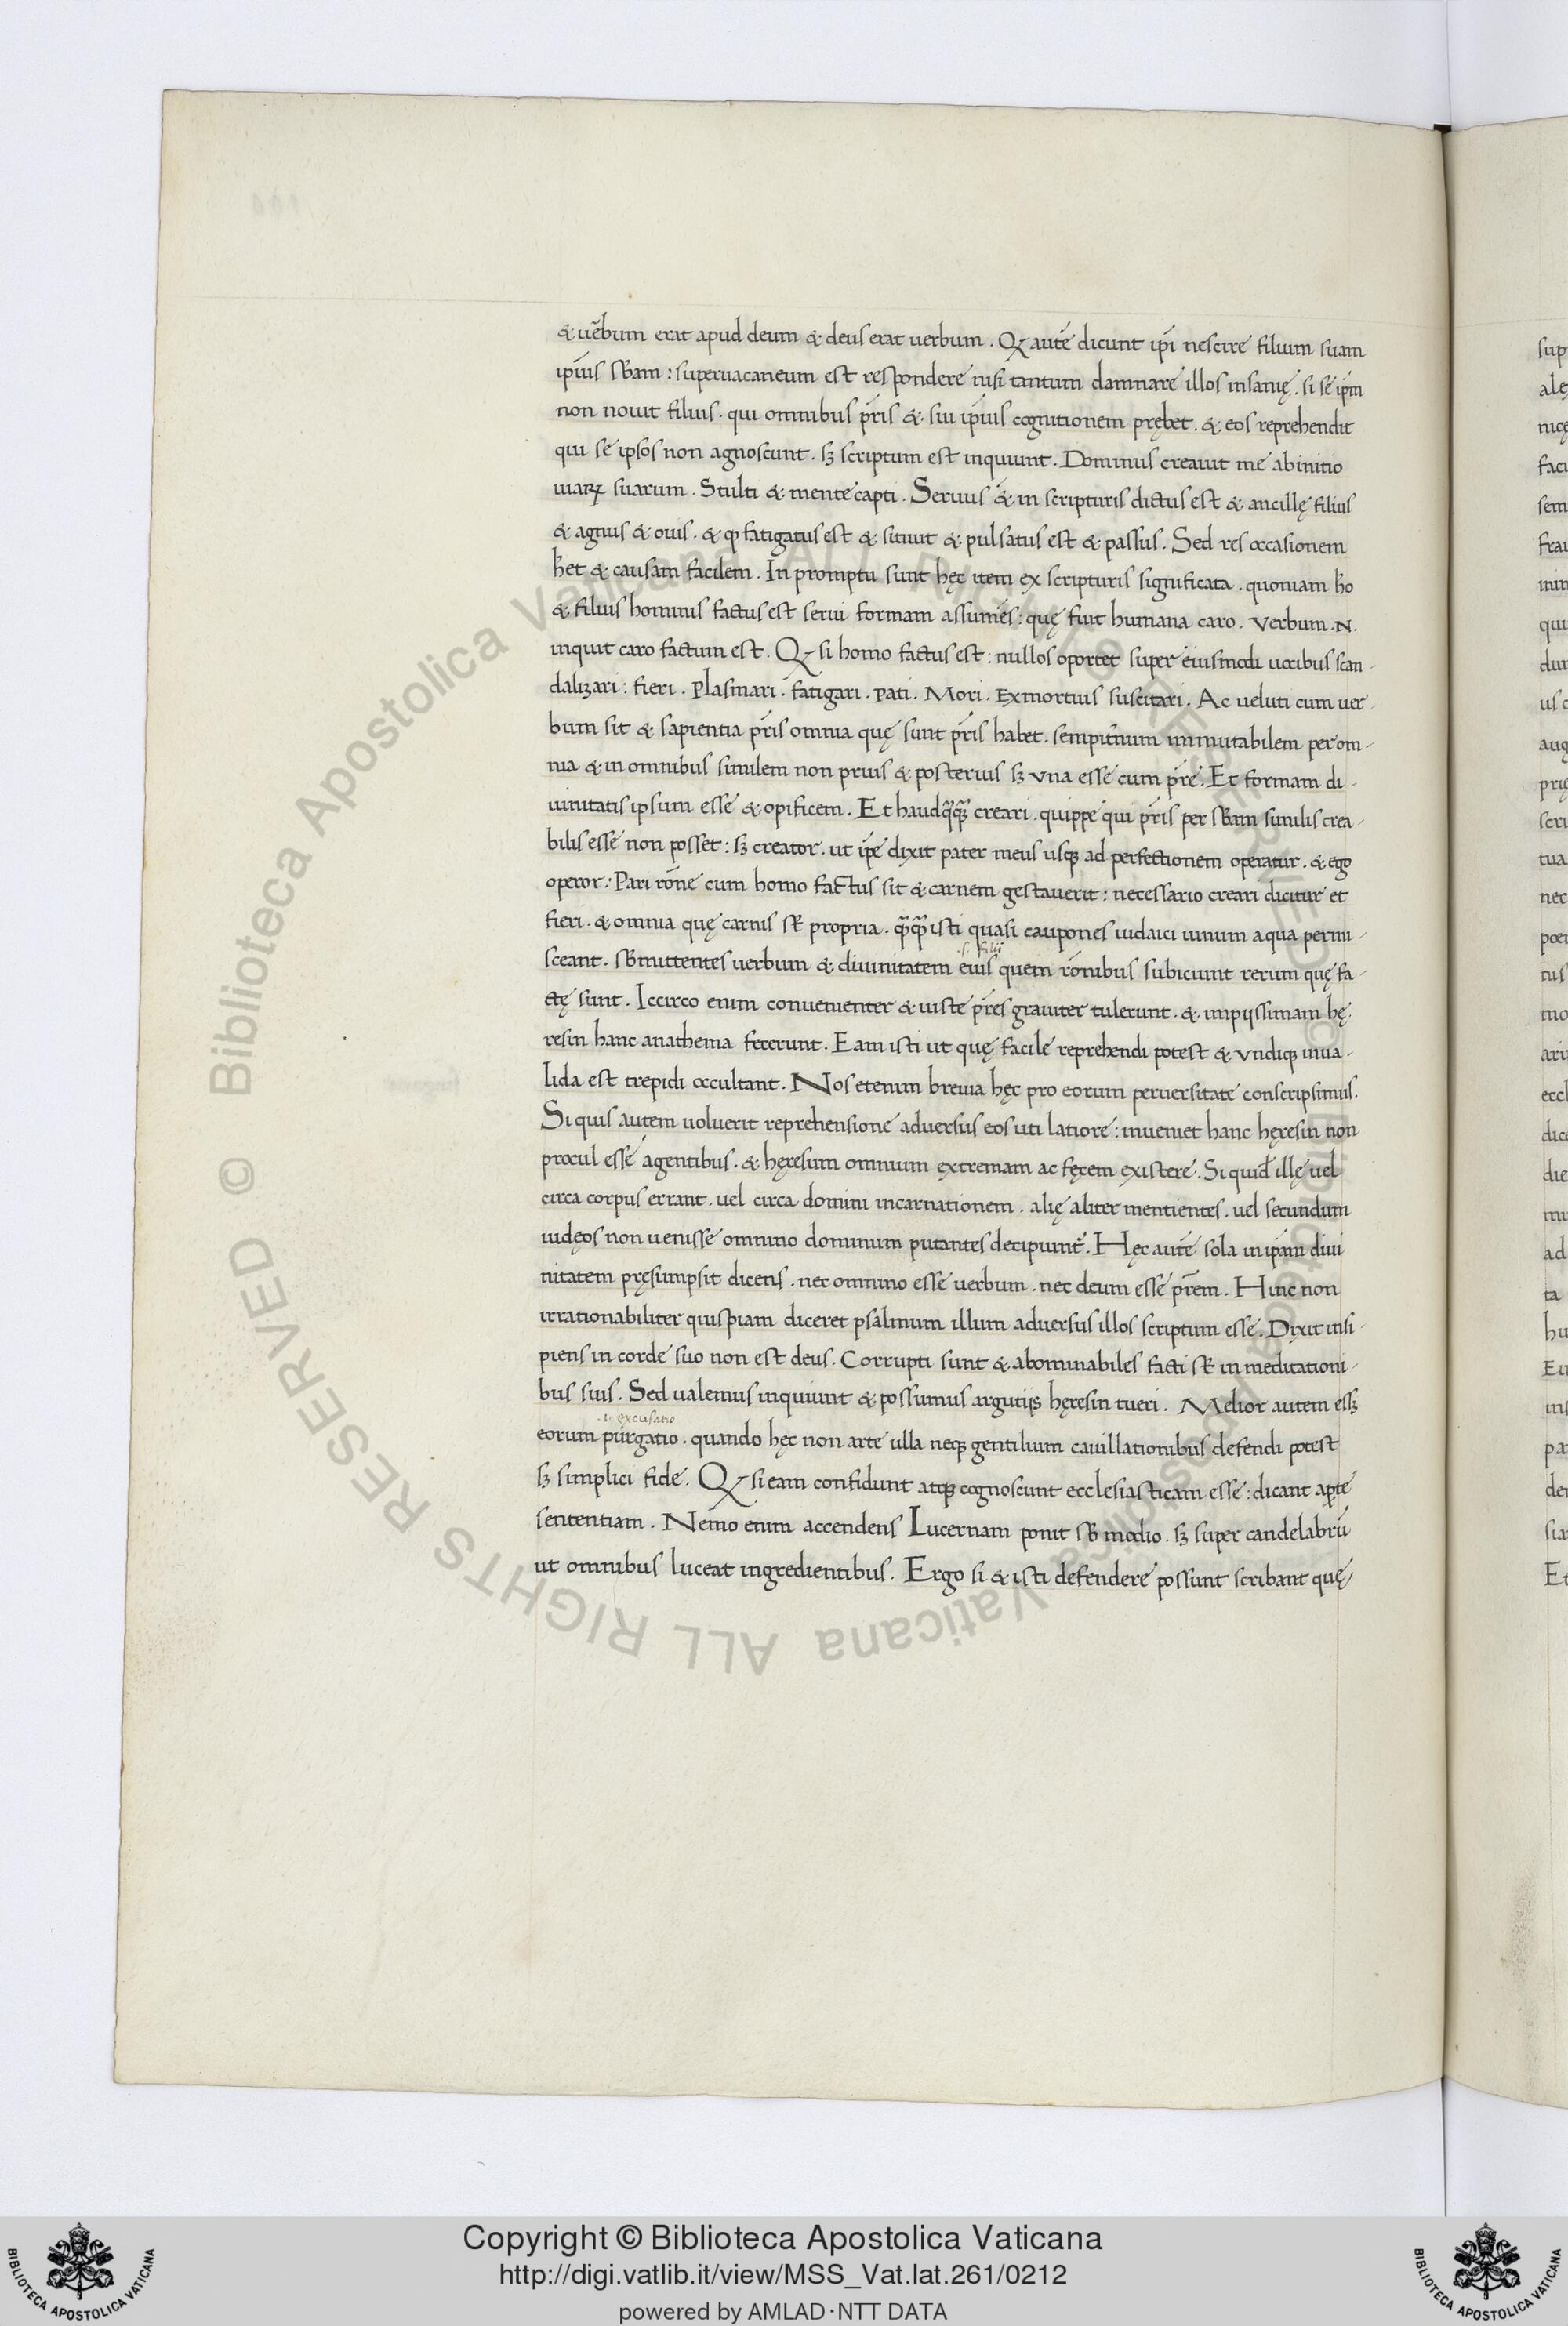 & uẽbum erat apud deum & deus erat uerbum. Q autẽ dicunt ip̃i nescire filium suam
ip̃ius sb̃am: superuacaneum est respondere nisi tantum damnare illos insanię. si se ip̃m
non nouit filius. qui omnibus pr̃is & sui ip̃ius cognitionem prębet. & eos reprehendit
qui se ipsos non agnoscunt. sꝫ scriptum est inquiunt. Dominus creauit me ab initio
uiaꝝ suarum. Stulti & mente capti. Seruus & in scripturis dictus est & ancillę filius
& agnus & ouis. & ꝙ fatigatus est & sitiuit & pulsatus est & passus. Sed res occasionem
h̃et & causam facilem. In promptu sunt hęc item ex scripturis significata. quoniam h̃o
& filius hominis factus est serui formam assumẽs: quę fuit humana caro. Verbum .N.
inquit caro factum est. Q si homo factus est: nullos oportet super eiusmodi uocibus scan-
dalizari: fieri. Plasmari. fatigari. Pati. Mori. Ex mortuis suscitari. Ac ueluti cum uer-
bum sit & sapientia pr̃is omnia quę sunt pr̃is habet. sempit̃num immutabilem per om-
nia & in omnibus similem non prius & posterius sꝫ Vna esse cum pr̃e. Et formam di-
uinitatis ipsum esse & opificem. Et haudq̃q̃ꝫ creari. quippe qui pr̃is per sb̃am similis crea-
bilis esse non posset: sꝫ creator. ut ip̃e dixit pater meus usqꝫ ad perfectionem operatur. & ego
operor: Pari rõne cum homo factus sit & carnem gestauerit: necessario creari dicitur et
fieri. & omnia quę carnis st̃ propria. q̃q̃ isti quasi caupones iudaici uinum aqua permi-
.s. filii
sceant. sb̃mittentes uerbum & diuinitatem eius quem rõnibus subiciunt rerum quę fa-
ctę sunt. Iccirco enim conuenienter & iuste pr̃es grauiter tulerunt. & impijssimam hę-
resin hanc anathema fecerunt. Eam isti ut quę facile reprehendi potest & Vndiqꝫ inua-
lida est trepidi occultant. Nos etenim breuia hęc pro eorum peruersitate conscripsimus.
Si quis autem uoluerit reprehensione aduersus eos uti latiore: inueniet hanc hęresin non
procul esse agentibus. & hęresum omnium extremam ac fęcem existere. Siquid̃ illę uel
circa corpus errant. uel circa domini incarnationem. alię aliter mentientes. uel secundum
iudęos non uenisse omnino dominum putantes decipiunt̃. Hęc autẽ sola in ip̃am diui
nitatem pręsumpsit dicens. nec omnino esse uerbum. nec deum esse pr̃em. Hinc non
irrationabiliter quispiam diceret psalmum illum aduersus illos scriptum esse. Dixit insi-
piens in corde suo non est deus. Corrupti sunt & abominabiles facti st̃ in meditationi-
bus suis. Sed ualemus inquiunt & possumus argutijs hęresin tueri. Melior autem essꝫ
.i. excusatio
eorum purgatio. quando hęc non arte ulla neqꝫ gentilium cauillationibus defendi potest
sꝫ simplici fide. Q si eam confidunt atqꝫ cognoscunt ecclesiasticam esse: dicant aꝑte
sententiam. Nemo enim accendens Lucernam ponit sb̃ modio. sꝫ super candelabrũ
ut omnibus luceat ingredientibus. Ergo si & isti defendere possunt scribant quę
Copyright © Biblioteca Apostolica Vaticana
http://digi.vatlib.it/view/MSS_Vat.lat.261/0212
powered by AMLAD·NTT DATA
BIBLIOTECA APOSTOLICA VATICANA
BIBLIOTECA APOSTOLICA VATICANA
© Biblioteca Apostolica Vaticana ALL RIGHTS RESERVED
© Biblioteca Apostolica Vaticana ALL RIGHTS RESERVED